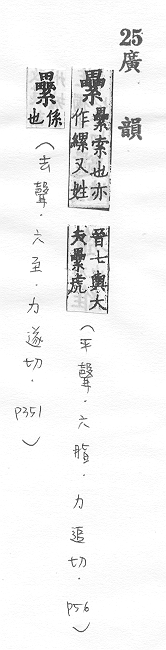 25廣韻
纍 纍索也亦作縲又姓
晉七輿大夫纍虎
(平聲.六脂.力追切.P56)
纍 係也
(去聲.六至.力遂切.P351)